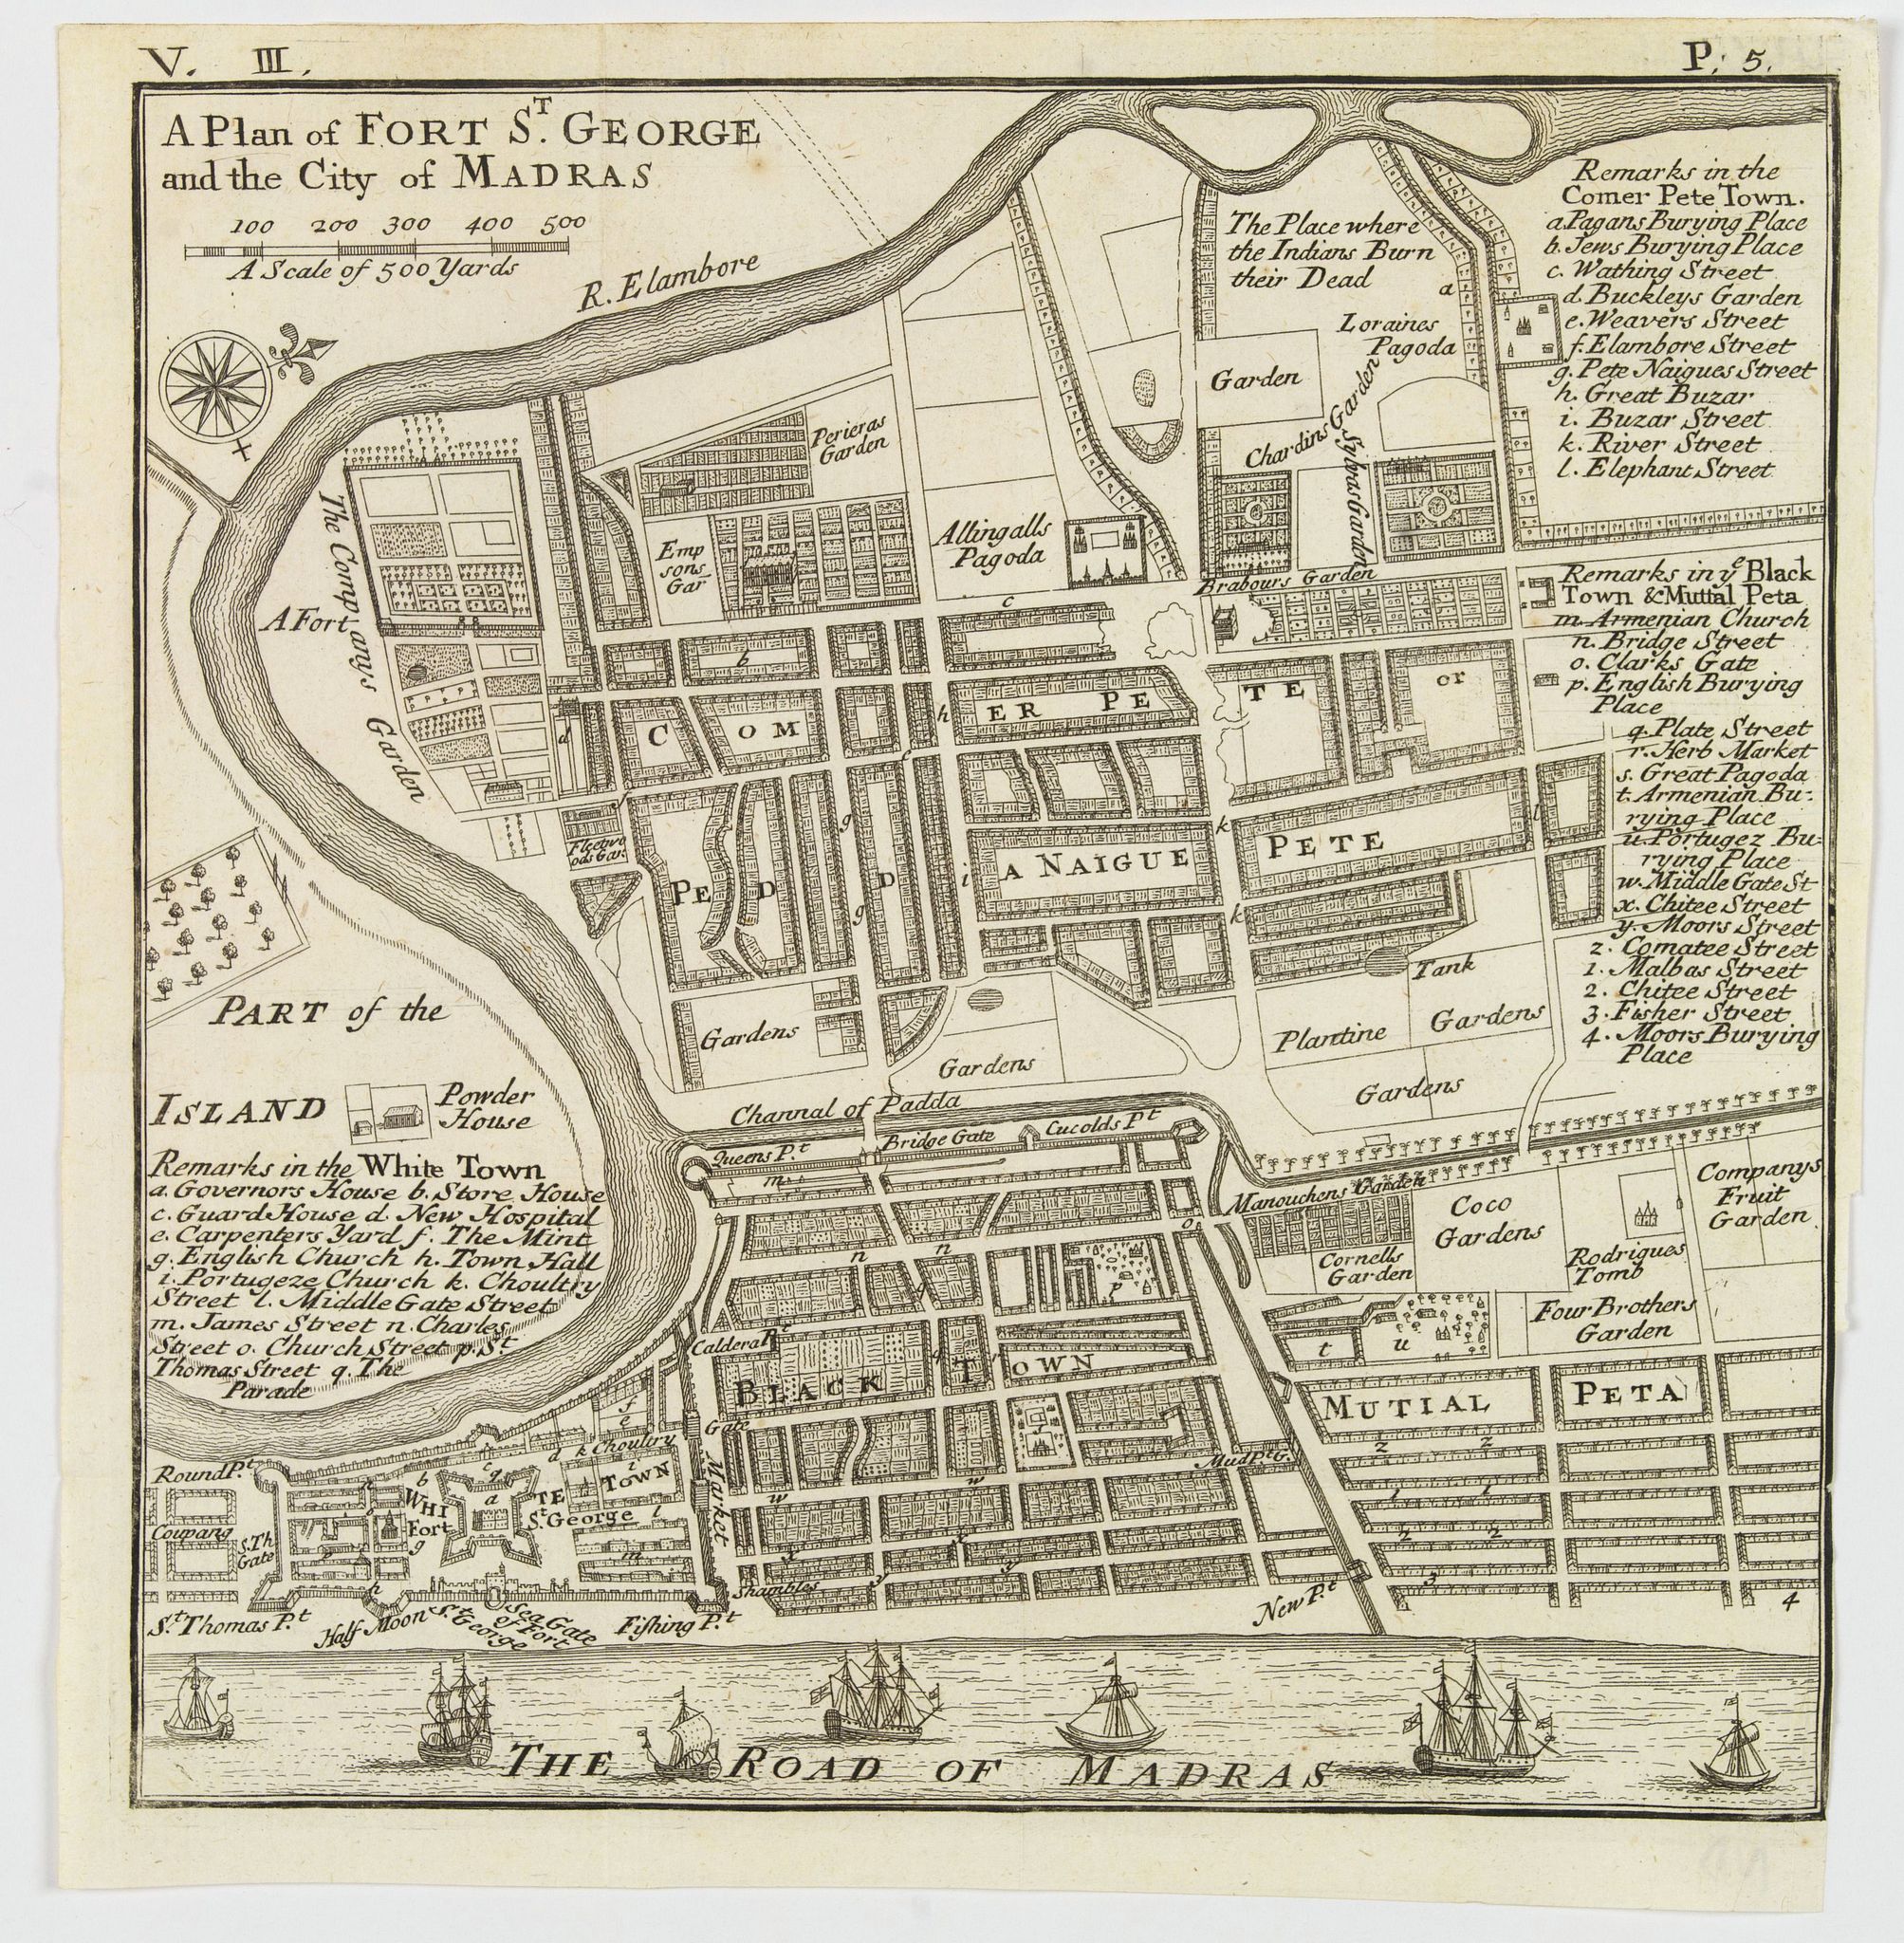 V. III.
P. 5.
A Plan of FORT S.T GEORGE
and the City of MADRAS
100 200 300 400 500
A Scale of 500 Yards
R. Elambore
The Place where
the Indians Burn
their Dead
a
Loraines
Pagoda
Garden
Chardins Garden
Sylvas Garden
Remarks in the
Comer Pete Town.
a Pagans Burying Place
b. Jews Burying Place
c. Wathing Street
d. Buckleys Garden
e. Weavers Street
f. Elambore Street
g. Pete Naigues Street
h. Great Buzar
i. Buzar Street
k. River Street
l. Elephant Street
Perieras
Garden
Emp
sons
Gar
Allingalls
Pagoda
Brabours Garden
The Companys Garden
A Fort
c
b
h
d
C OM ER PE TE or
PE D D A NAIGUE PETE
g
g
i
k
k
l
Fleetwo
ods Gar.
Remarks in ye Black
Town & Muttal Peta
m. Armenian Church
n. Bridge Street
o. Clarks Gate
p. English Burying
Place
q. Plate Street
r. Herb Market
s. Great Pagoda
t. Armenian Bu-
rying Place
u. Portugez Bu-
rying Place
w. Middle Gate St
x. Chitee Street
y. Moors Street
z. Comatee Street
1. Malbas Street
2. Chitee Street
3. Fisher Street
4. Moors Burying
Place
Tank
Gardens
Gardens
Plantine
Gardens
Gardens
PART of the
ISLAND
Powder
House
Channal of Padda
Queens P.t
Bridge Gate
Cucolds P.t
m
Remarks in the White Town
a. Governors House b. Store House
c. Guard House d. New Hospital
e. Carpenters Yard f. The Mint
g. English Church h. Town Hall
i. Portugeze Church k. Choultry
Street l. Middle Gate Street
m. James Street n. Charles
Street o. Church Street p. St
Thomas Street q. The
Parade
Manouchens Garden
Cornells
Garden
Coco
Gardens
Rodrigues
Tomb
Companys
Fruit
Garden
Four Brothers
Garden
o
n n
q
p
t u
Caldera P.t
q
BLACK TOWN
MUTIAL PETA
Gate
Market
Mud Pt G.
z z
1 1
2 2
3
4
w w
x
y y
Shambles
New P.t
f
e
d k Choultry
i
TOWN
Round P.t
Coupang
S. Th
Gate
WHI TE
Fort St. George
b c q
a
g
n
o
p
h
l
m
St. Thomas P.t
Half Moon
Sea Gate
of Fort
St. George
Fishing P.t
THE ROAD OF MADRAS